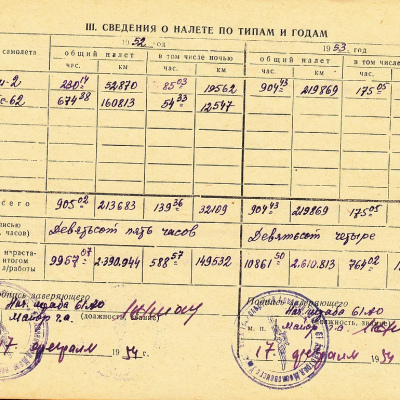 III. СВЕДЕНИЯ О НАЛЕТЕ ПО ТИПАМ И ГОДАМ
1952 год 1953 год
самолета общий налет в том числе ночью общий налет в том числе
час. км час. км час. км час.
-2 230 14 52870 85 03 19562 904 43 219869 175 05
-62 674 38 160813 54 33 12547
сего 905 02 213683 139 36 32109 904 43 219869 175 05
писью часов) Девятьсот пять часов Девятьсот четыре
нараста- итогом работы 9957 07 2.390.944 588 57 149532 10861 50 2.610.813 764 02
подпись заверяющего Подпись заверяющего
Нач. штаба 61 АО Нач. штаба 61 АО
Майор г.а. (должность, звание) м. п. Майор г.а. должность, звание)
17. февраля 1954 г. 17. февраля 1954